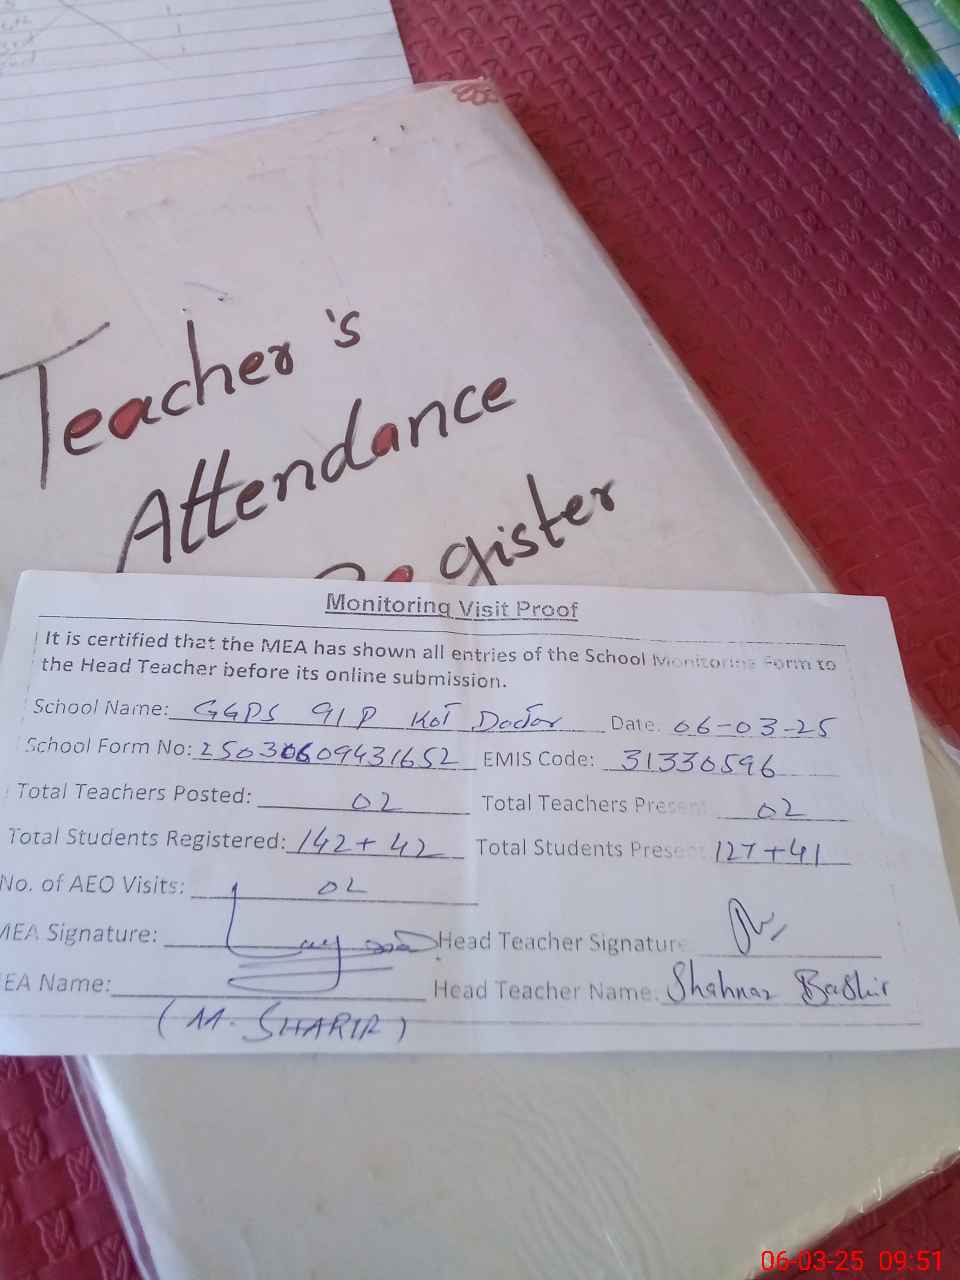 Teacher's
Attendance
Register
Monitoring Visit Proof
It is certified that the MEA has shown all entries of the School Monitoring Form to
the Head Teacher before its online submission.
School Name: GGPS 91P Kot Doctor Date: 06-03-25
School Form No: 25030609431652 EMIS Code: 31330596
Total Teachers Posted: 02 Total Teachers Present 02
Total Students Registered: 142+42 Total Students Present 127+41
No. of AEO Visits: 02
MEA Signature: Head Teacher Signature
EA Name: Head Teacher Name: Shahnaz Bashir
(M. SHARIF)
06-03-25 09:51